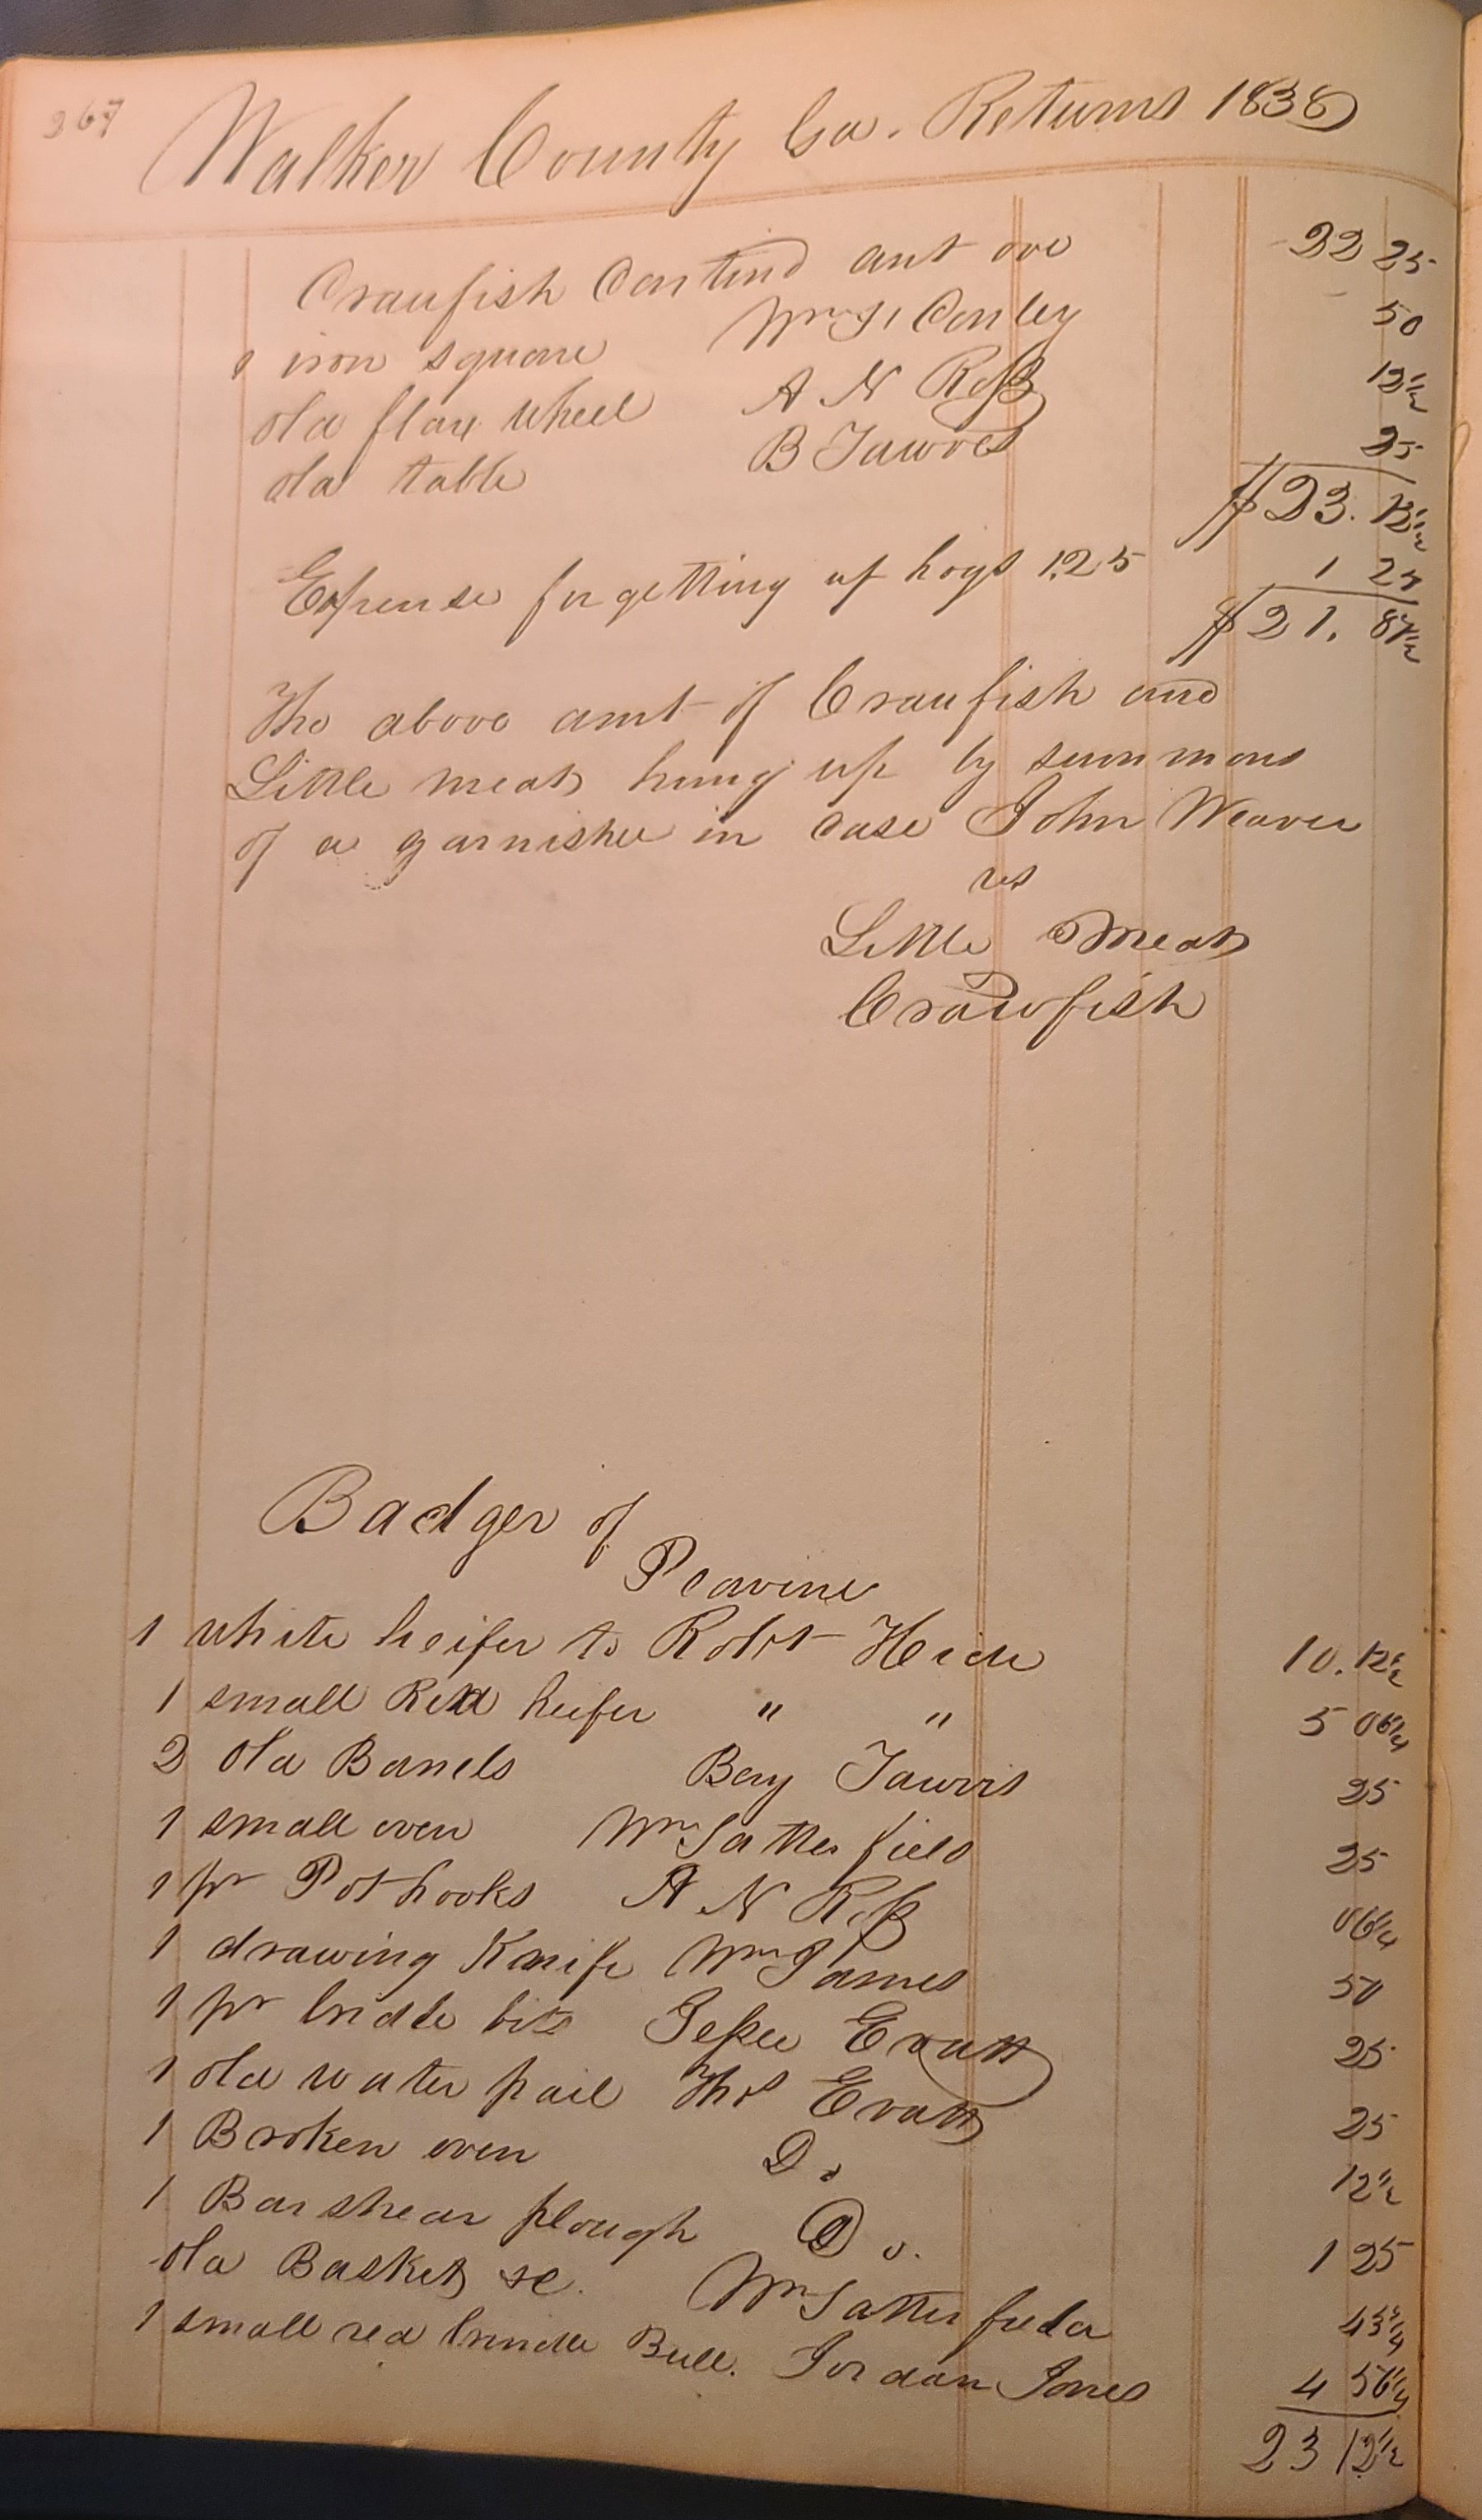 267
Walker County Ga. Returns 1838
Craufish Contind amt ove 22 25
1 iron square Wm J. Conley 50
old flax wheel A N Ross 12 1/2
old table B Jawves 25
$23. 12 1/2
Expense for getting up hogs 1.25 1 25
$21. 87 1/2
The above amt of Craufish and
Little meat hung up by summons
of a garnishee in case John Weaver
vs
Little Meat
Crawfish
Badger of
Peavine
1 white heifer to Robt Hede 10. 12 1/2
1 small Red heifer " " 5 06 1/4
2 old Barrels Beny Jawvis 25
1 small oven Wm Satterfield 25
1 pr Pot hooks A N Ross 06 1/4
1 drawing Knife Wm James 50
1 pr bridle bits Jessee Evatt 25
1 old water pail Thos Evatt 25
1 Broken oven Do 12 1/2
1 Barshear plough Do. 1 25
old Baskets &c. Wm Satterfield 43 3/4
1 small red brindle Bull. Jordan Jones 4 56 1/4
23 12 1/2